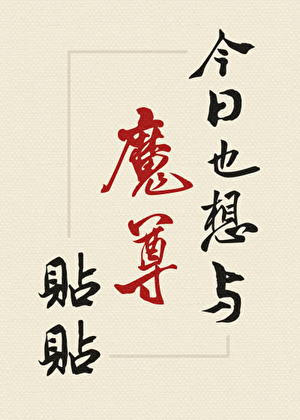 今日也想与
魔尊
貼貼